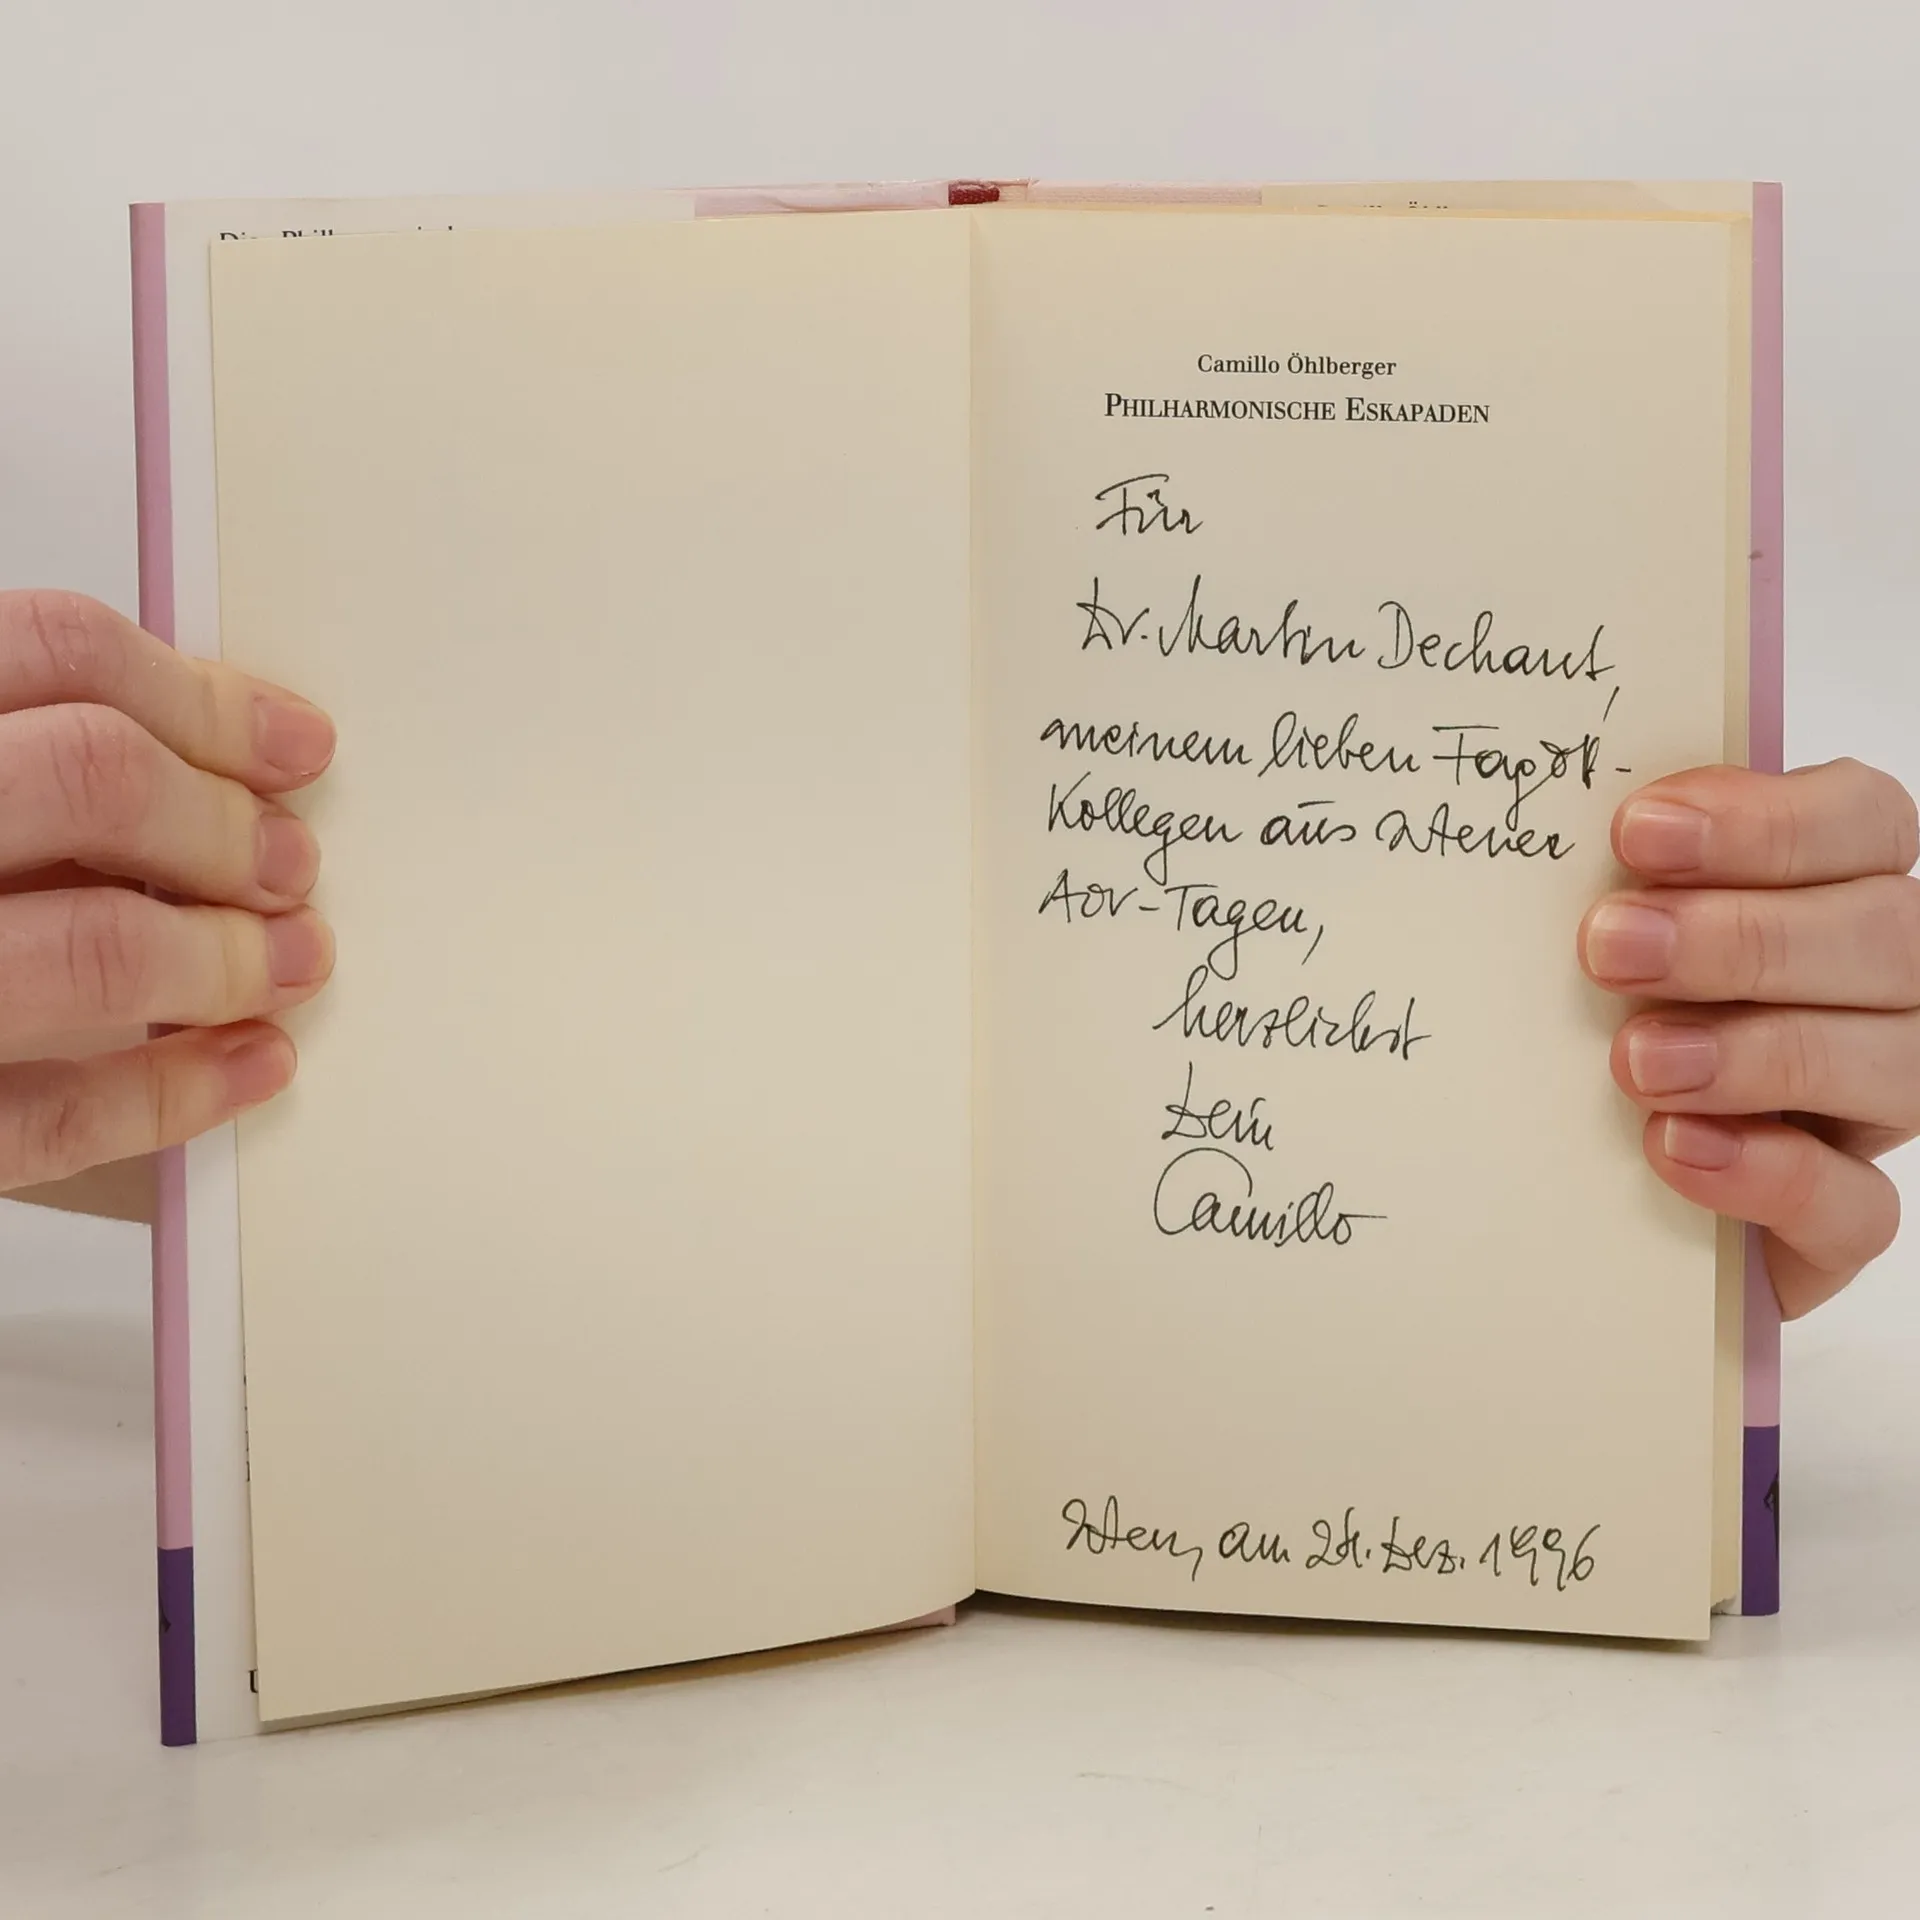 Camillo Öhlberger
PHILHARMONISCHE ESKAPADEN
Für
Dr. Martin Dechant,
meinem lieben Fagott-
Kollegen aus Wiener
AOV-Tagen,
herzlichst
Dein
Camillo
Wien, am 24. Dez. 1996